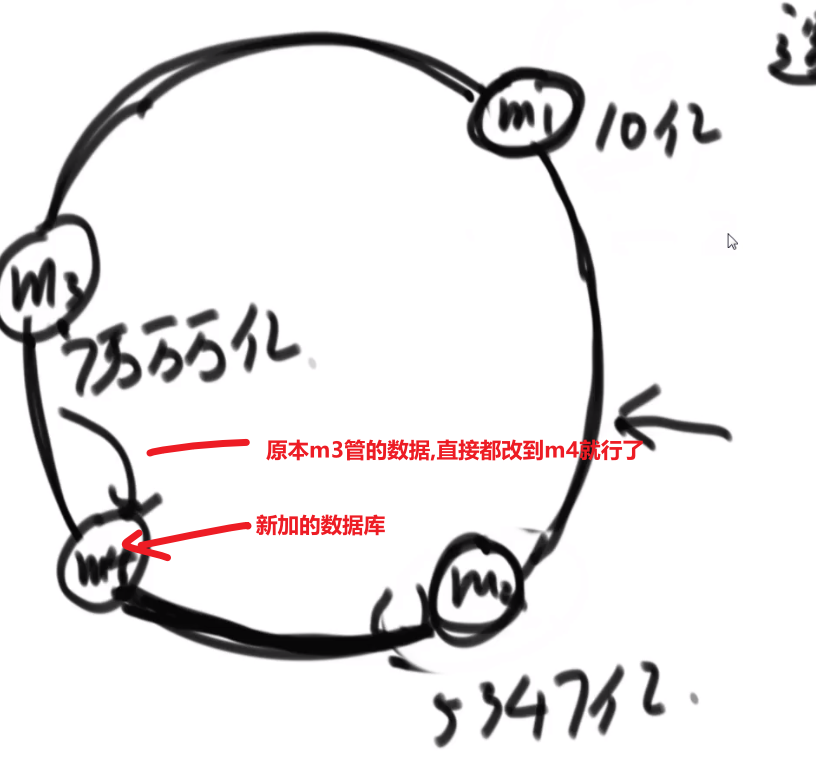 m1
10亿
m3
7万万万亿
原本m3管的数据,直接都改到m4就行了
新加的数据库
m4
m2
5347亿